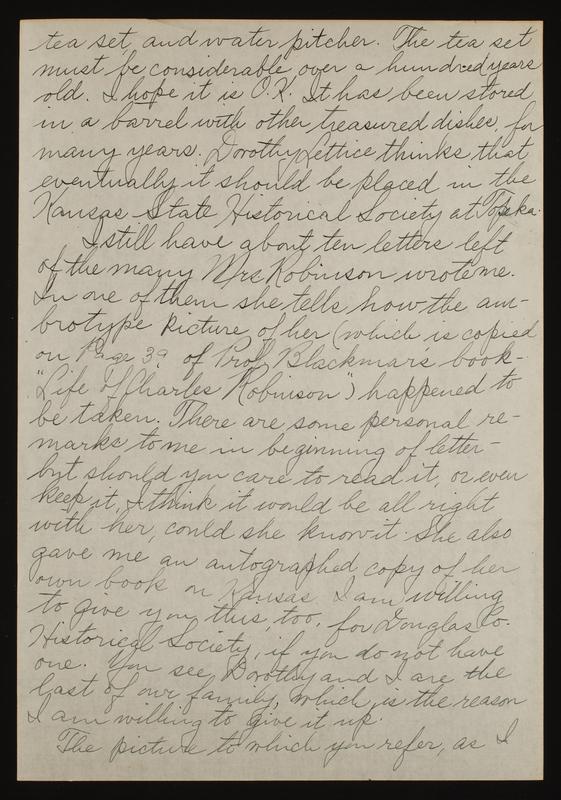 tea set, and water pitcher. The tea set
must be considerable over a hundred years
old. I hope it is O.K. It has been stored
in a barrel with other treasured dishes, for
many years. Dorothy Lettice thinks that
eventually it should be placed in the
Kansas State Historical Society at Topeka.
I still have about ten letters left
of the many Mrs Robinson wrote me.
In one of them she tells how the am-
brotype picture of her (which is copied
on Page 39 of Prof. Blackmars book-
"Life of Charles Robinson") happened to
be taken. There are some personal re-
marks to me in beginning of letter-
but should you care to read it, or even
keep it, I think it would be all right
with her, could she know it. She also
gave me an autographed copy of her
own book on Kansas. I am willing
to give you this, too, for Douglas Co.
Historical Society, if you do not have
one. You see, Dorothy and I are the
last of our family, which is the reason
I am willing to give it up.
The picture to which you refer, as I